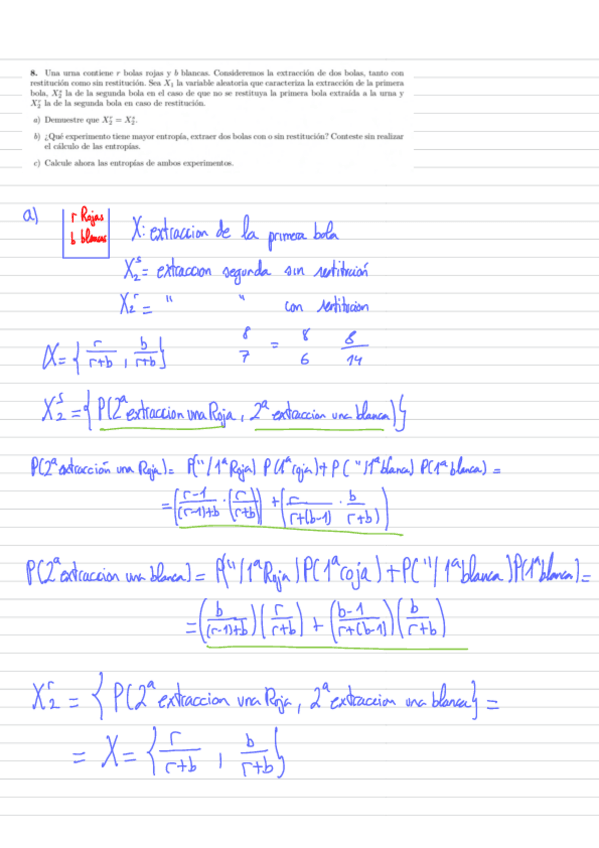 8. Una urna contiene r bolas rojas y b blancas. Consideremos la extracción de dos bolas, tanto con
restitución como sin restitución. Sea X₁ la variable aleatoria que caracteriza la extracción de la primera
bola, X₂ˢ la de la segunda bola en el caso de que no se restituya la primera bola extraída a la urna y
X₂ʳ la de la segunda bola en caso de restitución.
a) Demuestre que X₂ʳ = X₂ˢ.
b) ¿Qué experimento tiene mayor entropía, extraer dos bolas con o sin restitución? Conteste sin realizar
el cálculo de las entropías.
c) Calcule ahora las entropías de ambos experimentos.
a) r Rojas
b blancas
X: extraccion de la primera bola
X₂ˢ = extraccion segunda sin restitución
X₂ʳ = " " con restitucion
X = { r/(r+b) , b/(r+b) }
8/7 = 8/6 8/14
X₂ˢ = { P(2ª extraccion una Roja , 2ª extraccion una blanca) }
P(2ª extracción una Roja) = P("/1ª Roja) P(1ª roja) + P("/1ª blanca) P(1ª blanca) =
= ( (r-1)/((r-1)+b) · (r/(r+b)) ) + ( r/(r+(b-1)) · b/(r+b) )
P(2ª extraccion una blanca) = P("/1ª Roja) P(1ª roja) + P("/1ª blanca) P(1ª blanca) =
= ( b/((r-1)+b) ) ( r/(r+b) ) + ( (b-1)/(r+(b-1)) ) ( b/(r+b) )
X₂ʳ = { P(2ª extraccion una Roja, 2ª extraccion una blanca } =
= X = { r/(r+b) , b/(r+b) }